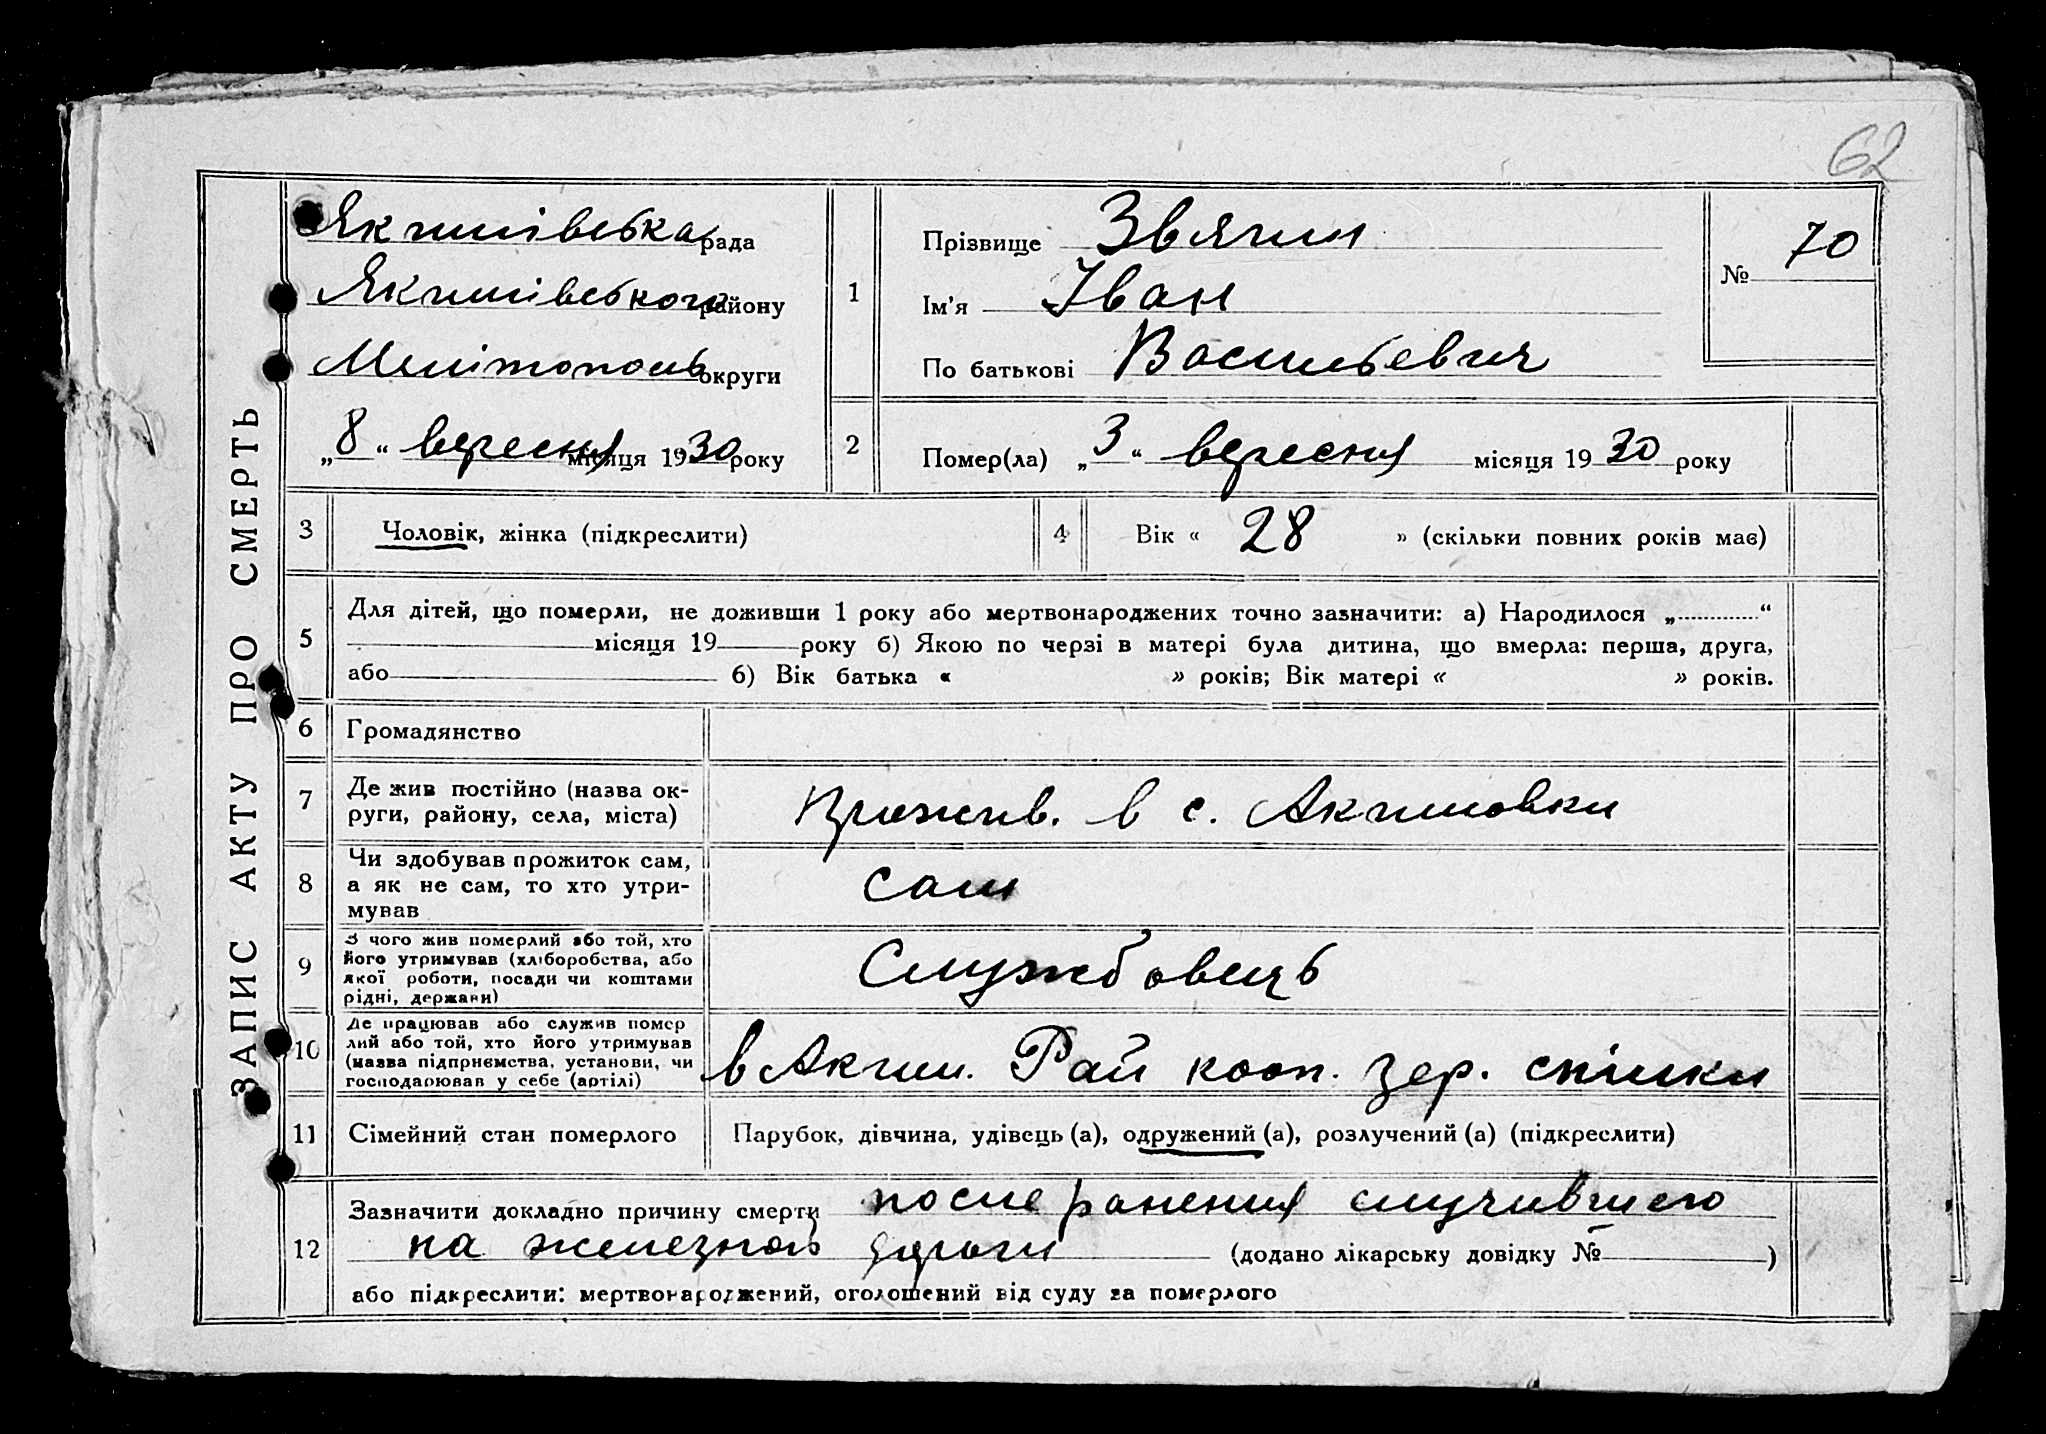 62
ЗАПИС АКТУ ПРО СМЕРТЬ
Якимівська рада
Якимівського району
Мелітополь округи
„8“ вересня місяця 1930 року
1
Прізвище Звягин
Ім'я Іван
По батькові Васильевич
№ 70
2
Помер(ла) „3“ вересня місяця 1930 року
3
Чоловік, жінка (підкреслити)
4
Вік « 28 » (скільки повних років має)
5
Для дітей, що померли, не доживши 1 року або мертвонароджених точно зазначити: а) Народилося „ “
місяця 19 року б) Якою по черзі в матері була дитина, що вмерла: перша, друга,
або б) Вік батька « » років; Вік матері « » років.
6
Громадянство
7
Де жив постійно (назва ок-
руги, району, села, міста)
прожив. в с. Акимовки
8
Чи здобував прожиток сам,
а як не сам, то хто утри-
мував
сам
9
З чого жив померлий або той, хто
його утримував (хліборобства, або
якої роботи, посади чи коштами
рідні, держави)
Службовець
10
Де працював або служив помер
лий або той, хто його утримував
(назва підприємства, установи, чи
господарював у себе (артілі)
в Аким. Рай кооп. зер. спілки
11
Сімейний стан померлого
Парубок, дівчина, удівець (а), одружений (а), розлучений (а) (підкреслити)
12
Зазначити докладно причину смерти после ранения случившего
на железной дороги (додано лікарську довідку № )
або підкреслити: мертвонароджений, оголошений від суду за померлого